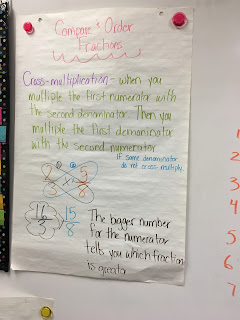 Compare & Order
Fractions
Cross-multiplication - when you
multiple the first numerator with
the second denominator. Then you
multiple the first demoninator
with the second numerator
If same denominator
do not cross-multiply
① ②
2 x 5
3 8
16 > 15
3 8
The bigger number
for the numerator
tells you which fraction
is greater
1
2
3
4
5
6
7